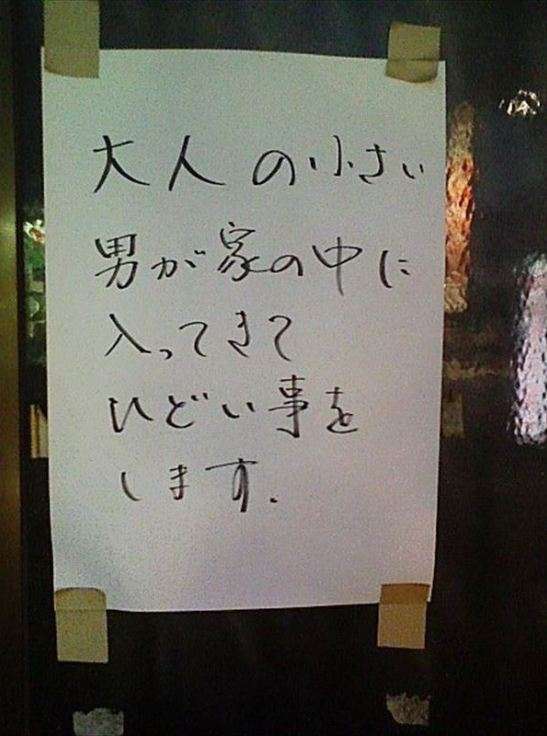 大人の小さい
男が家の中に
入ってきて
ひどい事を
します.